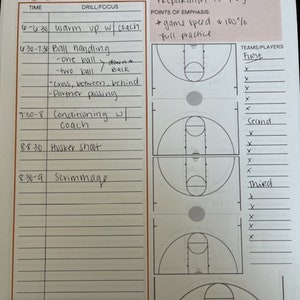 TIME DRILL/FOCUS
6-6:30 Warm up w/ coach
6:30-7:30 Ball handling
- one ball
- two ball
down & back
- cross, between, behind
- Partner passing
7:30-8 Conditioning w/ coach
8-8:30
8:30-9 Scrimmage
POINTS OF EMPHASIS:
* game speed & 100%
full practice
TEAMS/PLAYERS
First
x
x
x
x
x
Second
x
x
x
x
x
Third
x
x
x
x